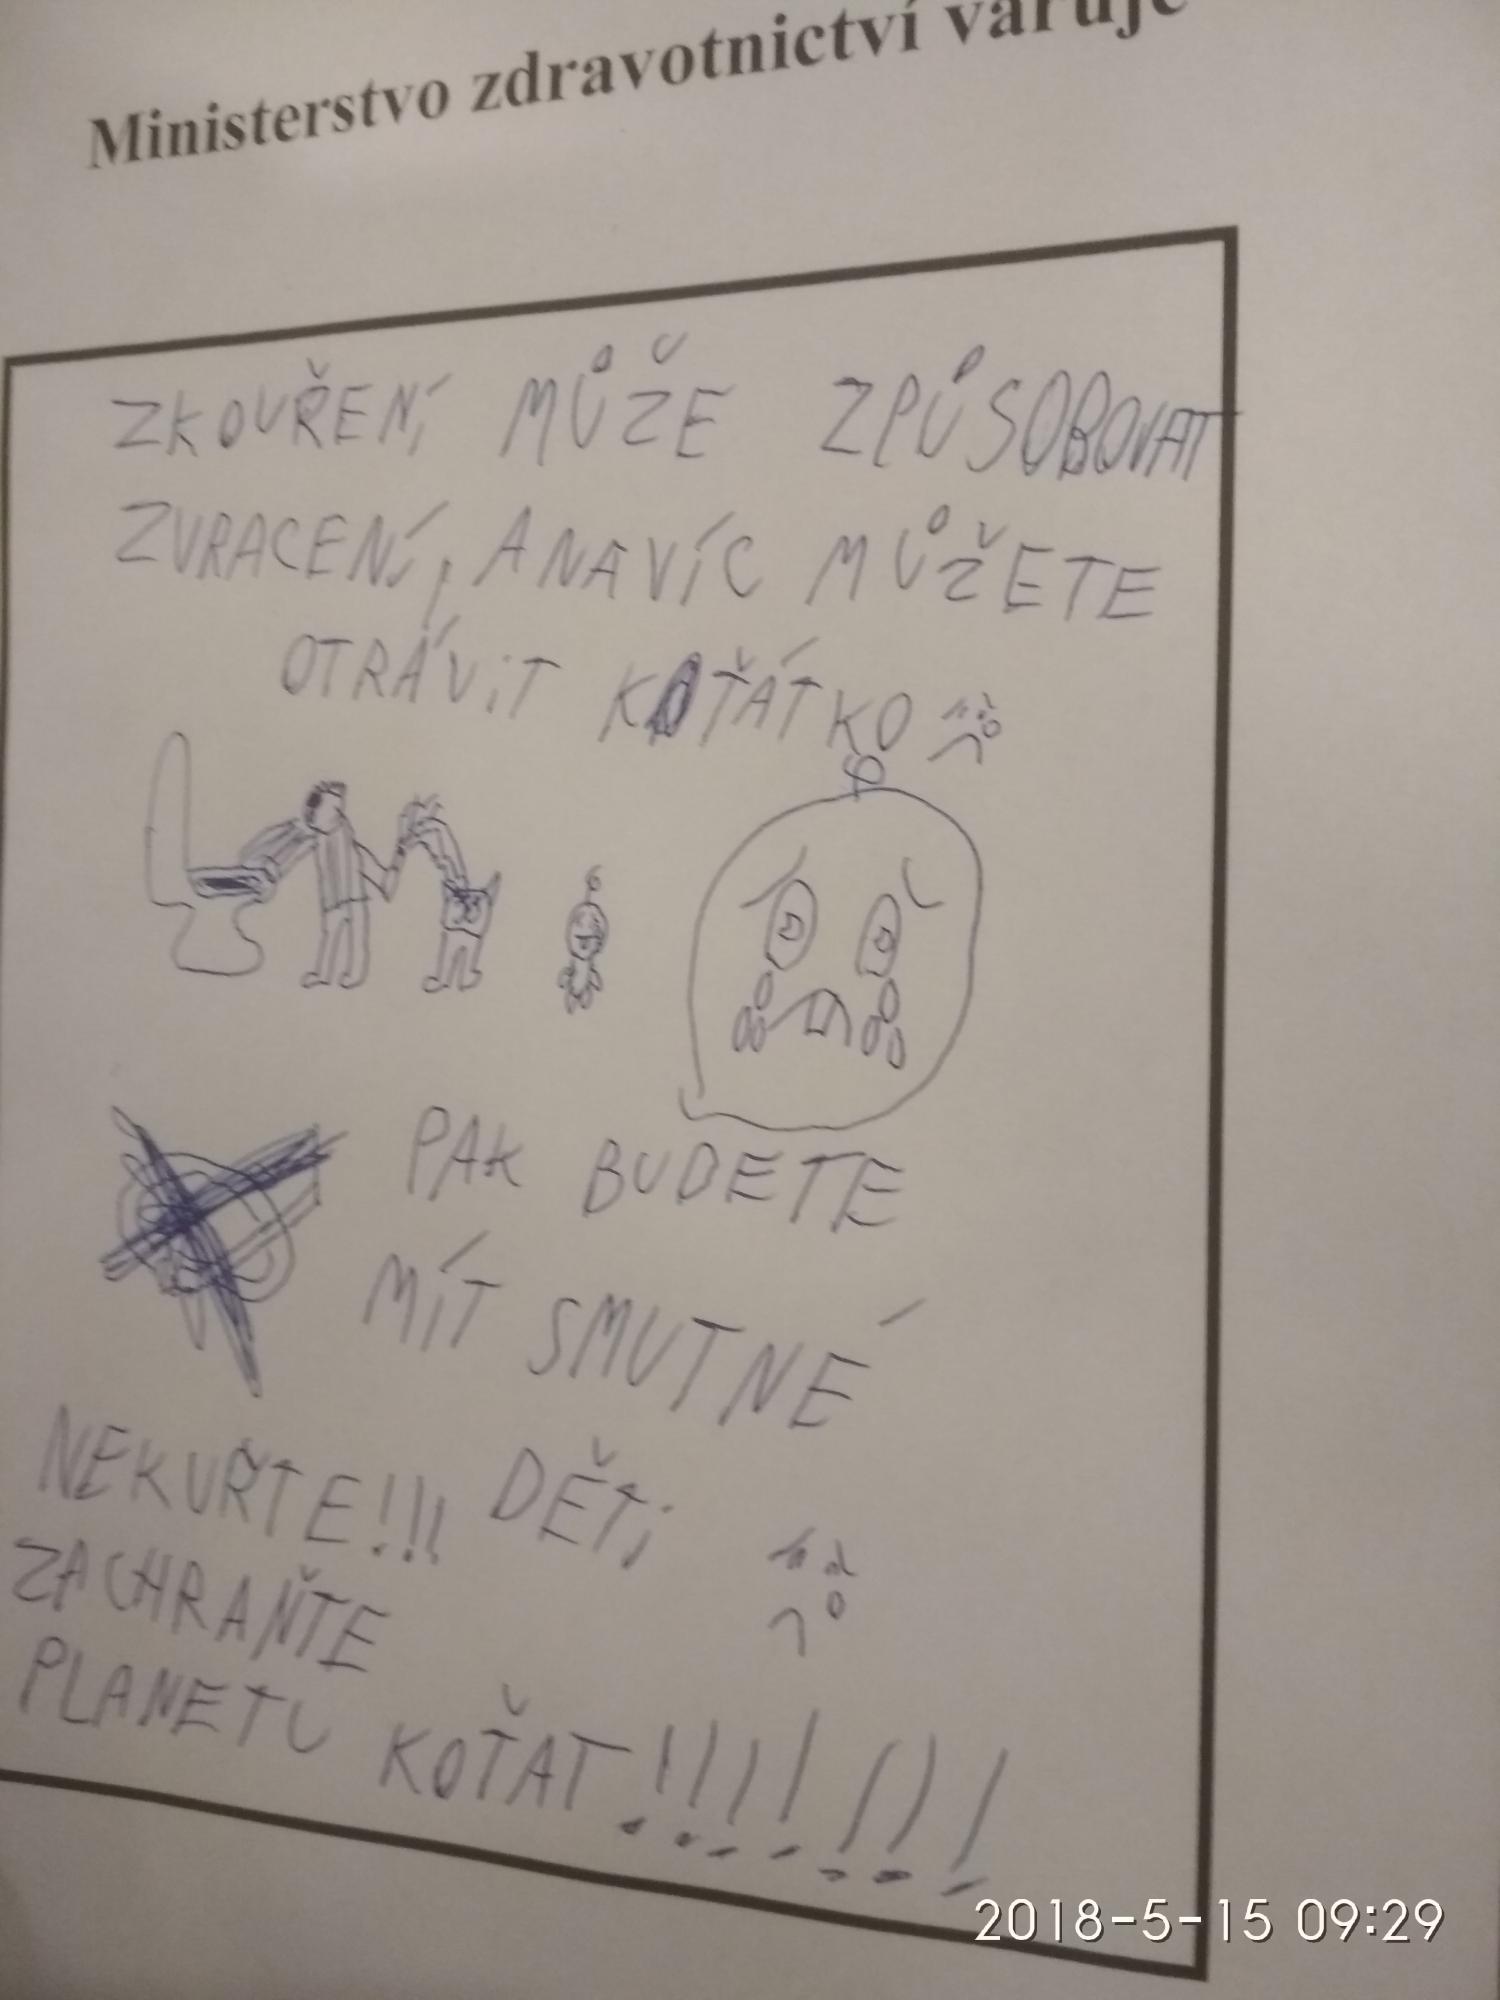 Ministerstvo zdravotnictví varuje
ZKOUŘENÍ MŮŽE ZPŮSOBOVAT
ZVRACENÍ, A NAVÍC MŮŽETE
OTRÁVIT KOŤÁTKO
PAK BUDETE
MÍT SMUTNÉ
DĚTI
NEKUŘTE!!!
ZACHRAŇTE
PLANETU KOŤAT!!!!!!!
2018-5-15 09:29